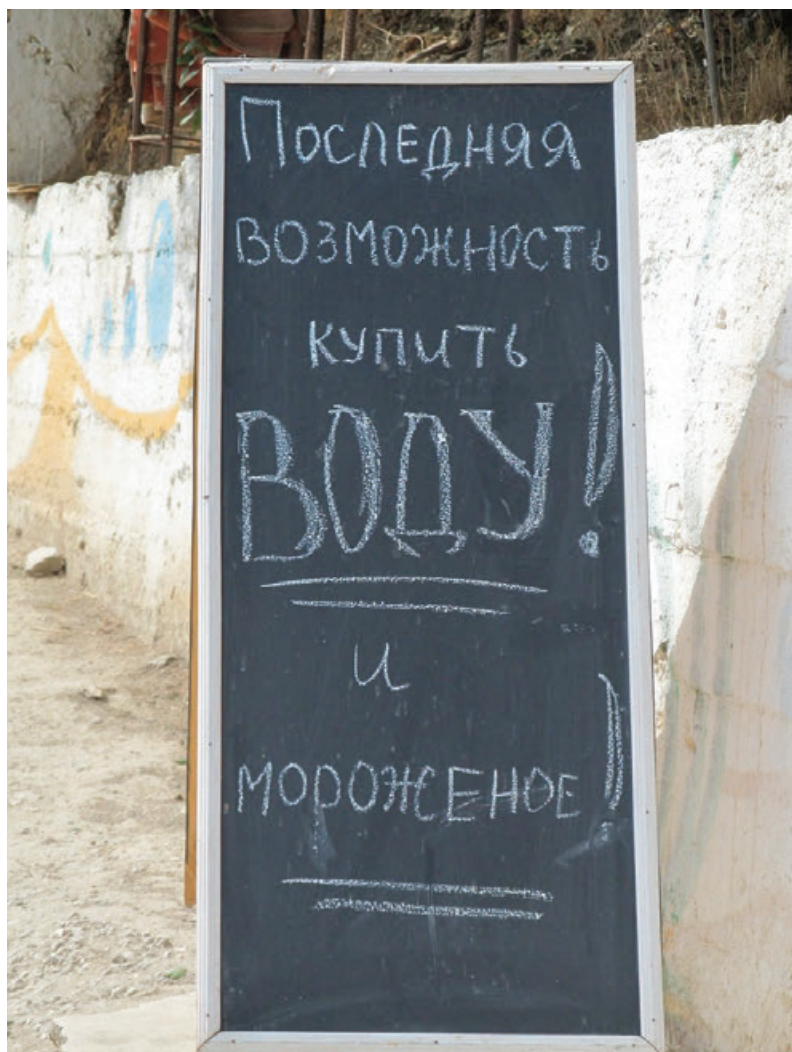 Последняя
возможность
купить
ВОДУ!
и
мороженое!